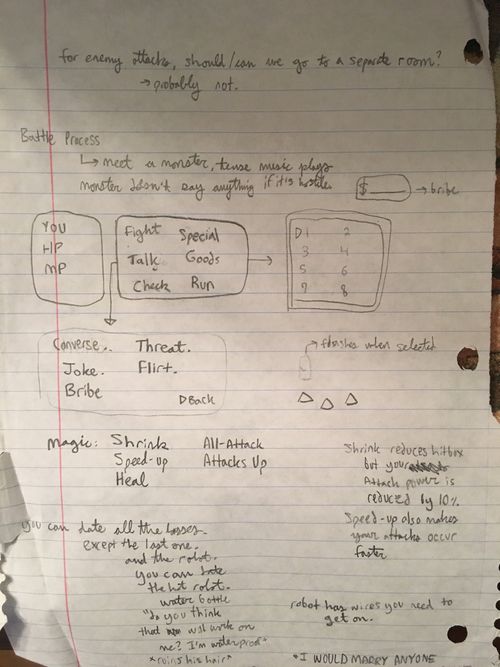 for enemy attacks, should/can we go to a separate room?
→ probably not.
Battle Process
↳ meet a monster, tense music plays
monster doesn't say anything if it's hostile.
$____ → bribe
YOU
HP
MP
Fight Special
Talk Goods
Check Run
▷1 2
3 4
5 6
7 8
Converse. Threat.
Joke. Flirt.
Bribe
▷Back
→ flashes when selected
Magic: Shrink All-Attack
Speed-up Attacks Up
Heal
Shrink reduces hitbox
but your
Attack power is
reduced by 10%.
Speed-up also makes
your attacks occur
faster
you can date all the bosses
except the last one.
and the robot.
you can
the hot robot.
water bottle
"do you think
that will work on
me? I'm waterproof"
*ruins his hair*
robot has wires you need to
get on.
*I WOULD MARRY ANYONE